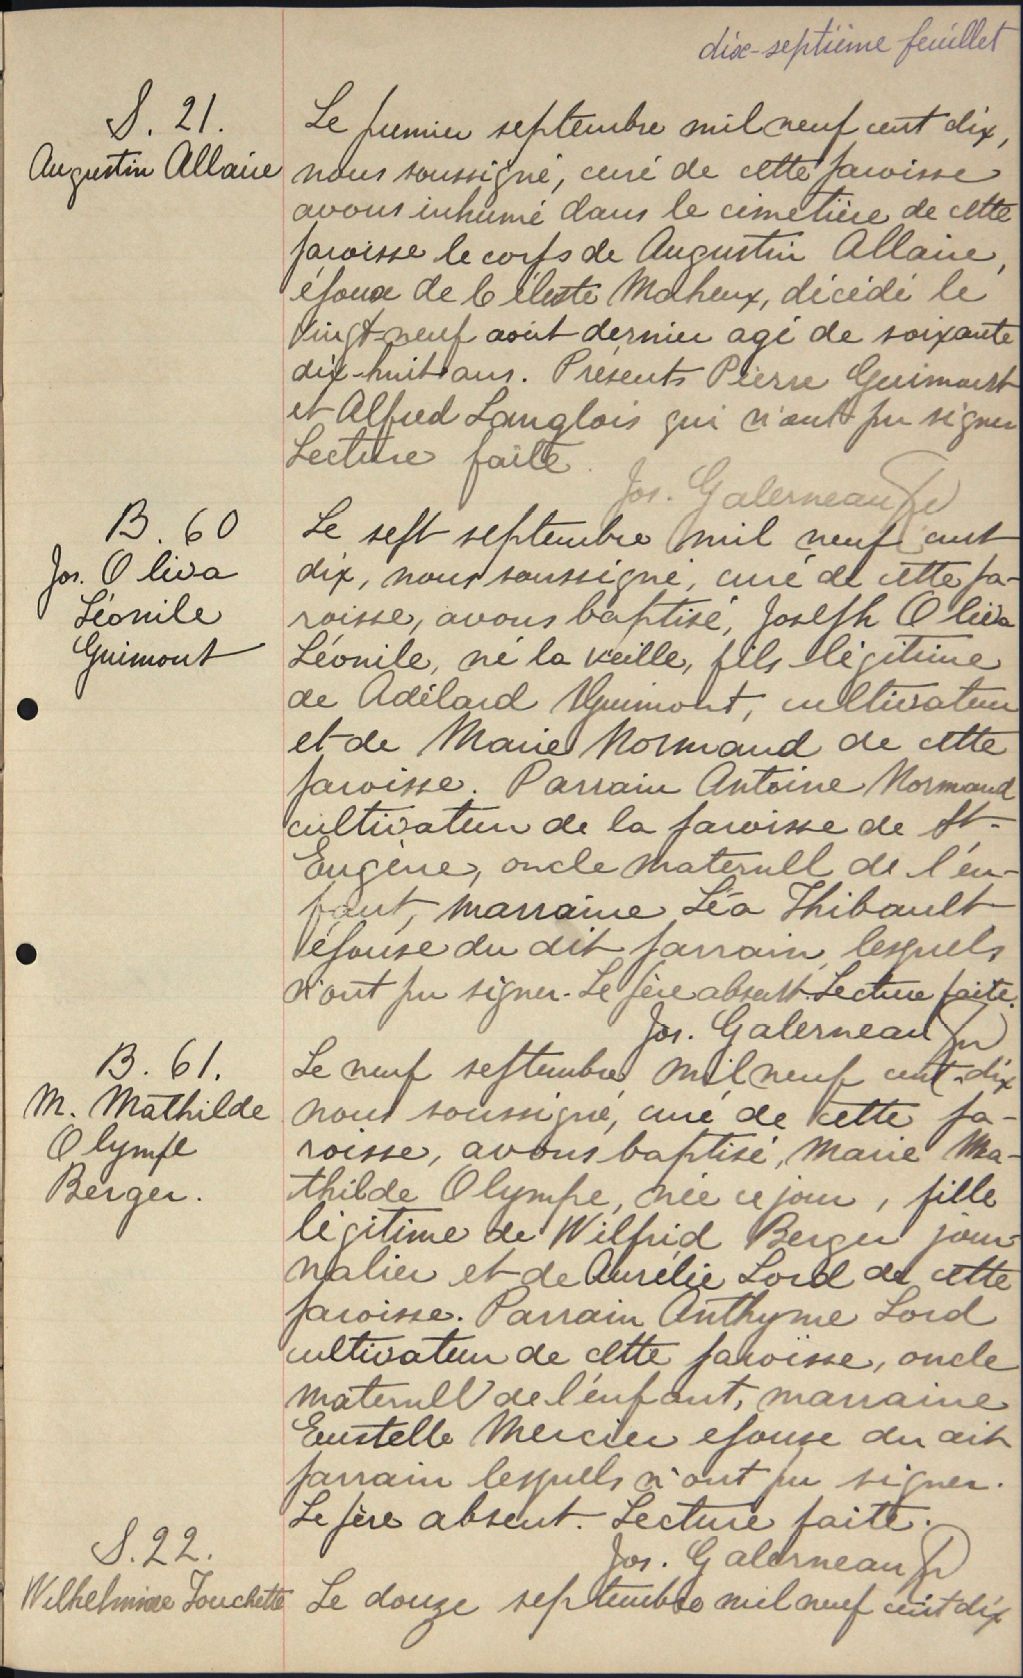 dix-septième feuillet
S. 21.
Augustin Allaire
Le premier septembre mil neuf cent dix,
nous soussigné, curé de cette paroisse
avons inhumé dans le cimetière de cette
paroisse le corps de Augustin Allaire,
époux de Céleste Maheux, décédé le
vingt-neuf août dernier agé de soixante
dix-huit ans. Présents Pierre Guimont
et Alfred Langlois qui n'ont pu signer
Lecture faite.
Jos. Galerneau Ptr
B. 60
Jos. Oliva
Léonile
Guimont
Le sept septembre mil neuf cent
dix, nous soussigné, curé de cette pa-
roisse, avons baptisé, Joseph Oliva
Léonile, né la veille, fils légitime
de Adélard Guimont, cultivateur
et de Marie Normand de cette
paroisse. Parrain Antoine Normand
cultivateur de la paroisse de St-
Eugène, oncle maternell de l'en-
fant, marraine Léa Thibault
épouse du dit parrain, lesquels
n'ont pu signer. Le père absent. Lecture faite.
Jos. Galerneau Ptr
B. 61.
M. Mathilde
Olympe
Berger.
Le neuf septembre mil neuf cent-dix
nous soussigné, curé de cette pa-
roisse, avons baptisé, Marie Ma-
thilde Olympe, née ce jour, fille
légitime de Wilfrid Berger jour-
nalier et de Aurélie Lord de cette
paroisse. Parrain Anthyme Lord
cultivateur de cette paroisse, oncle
maternell de l'enfant, marraine
Eustelle Mercier epouse du dit
parrain lesquells n'ont pu signer.
Le père absent. Lecture faite.
Jos. Galerneau Ptr
S. 22.
Wilhelmine Touchette
Le douze septembre mil neuf cent dix